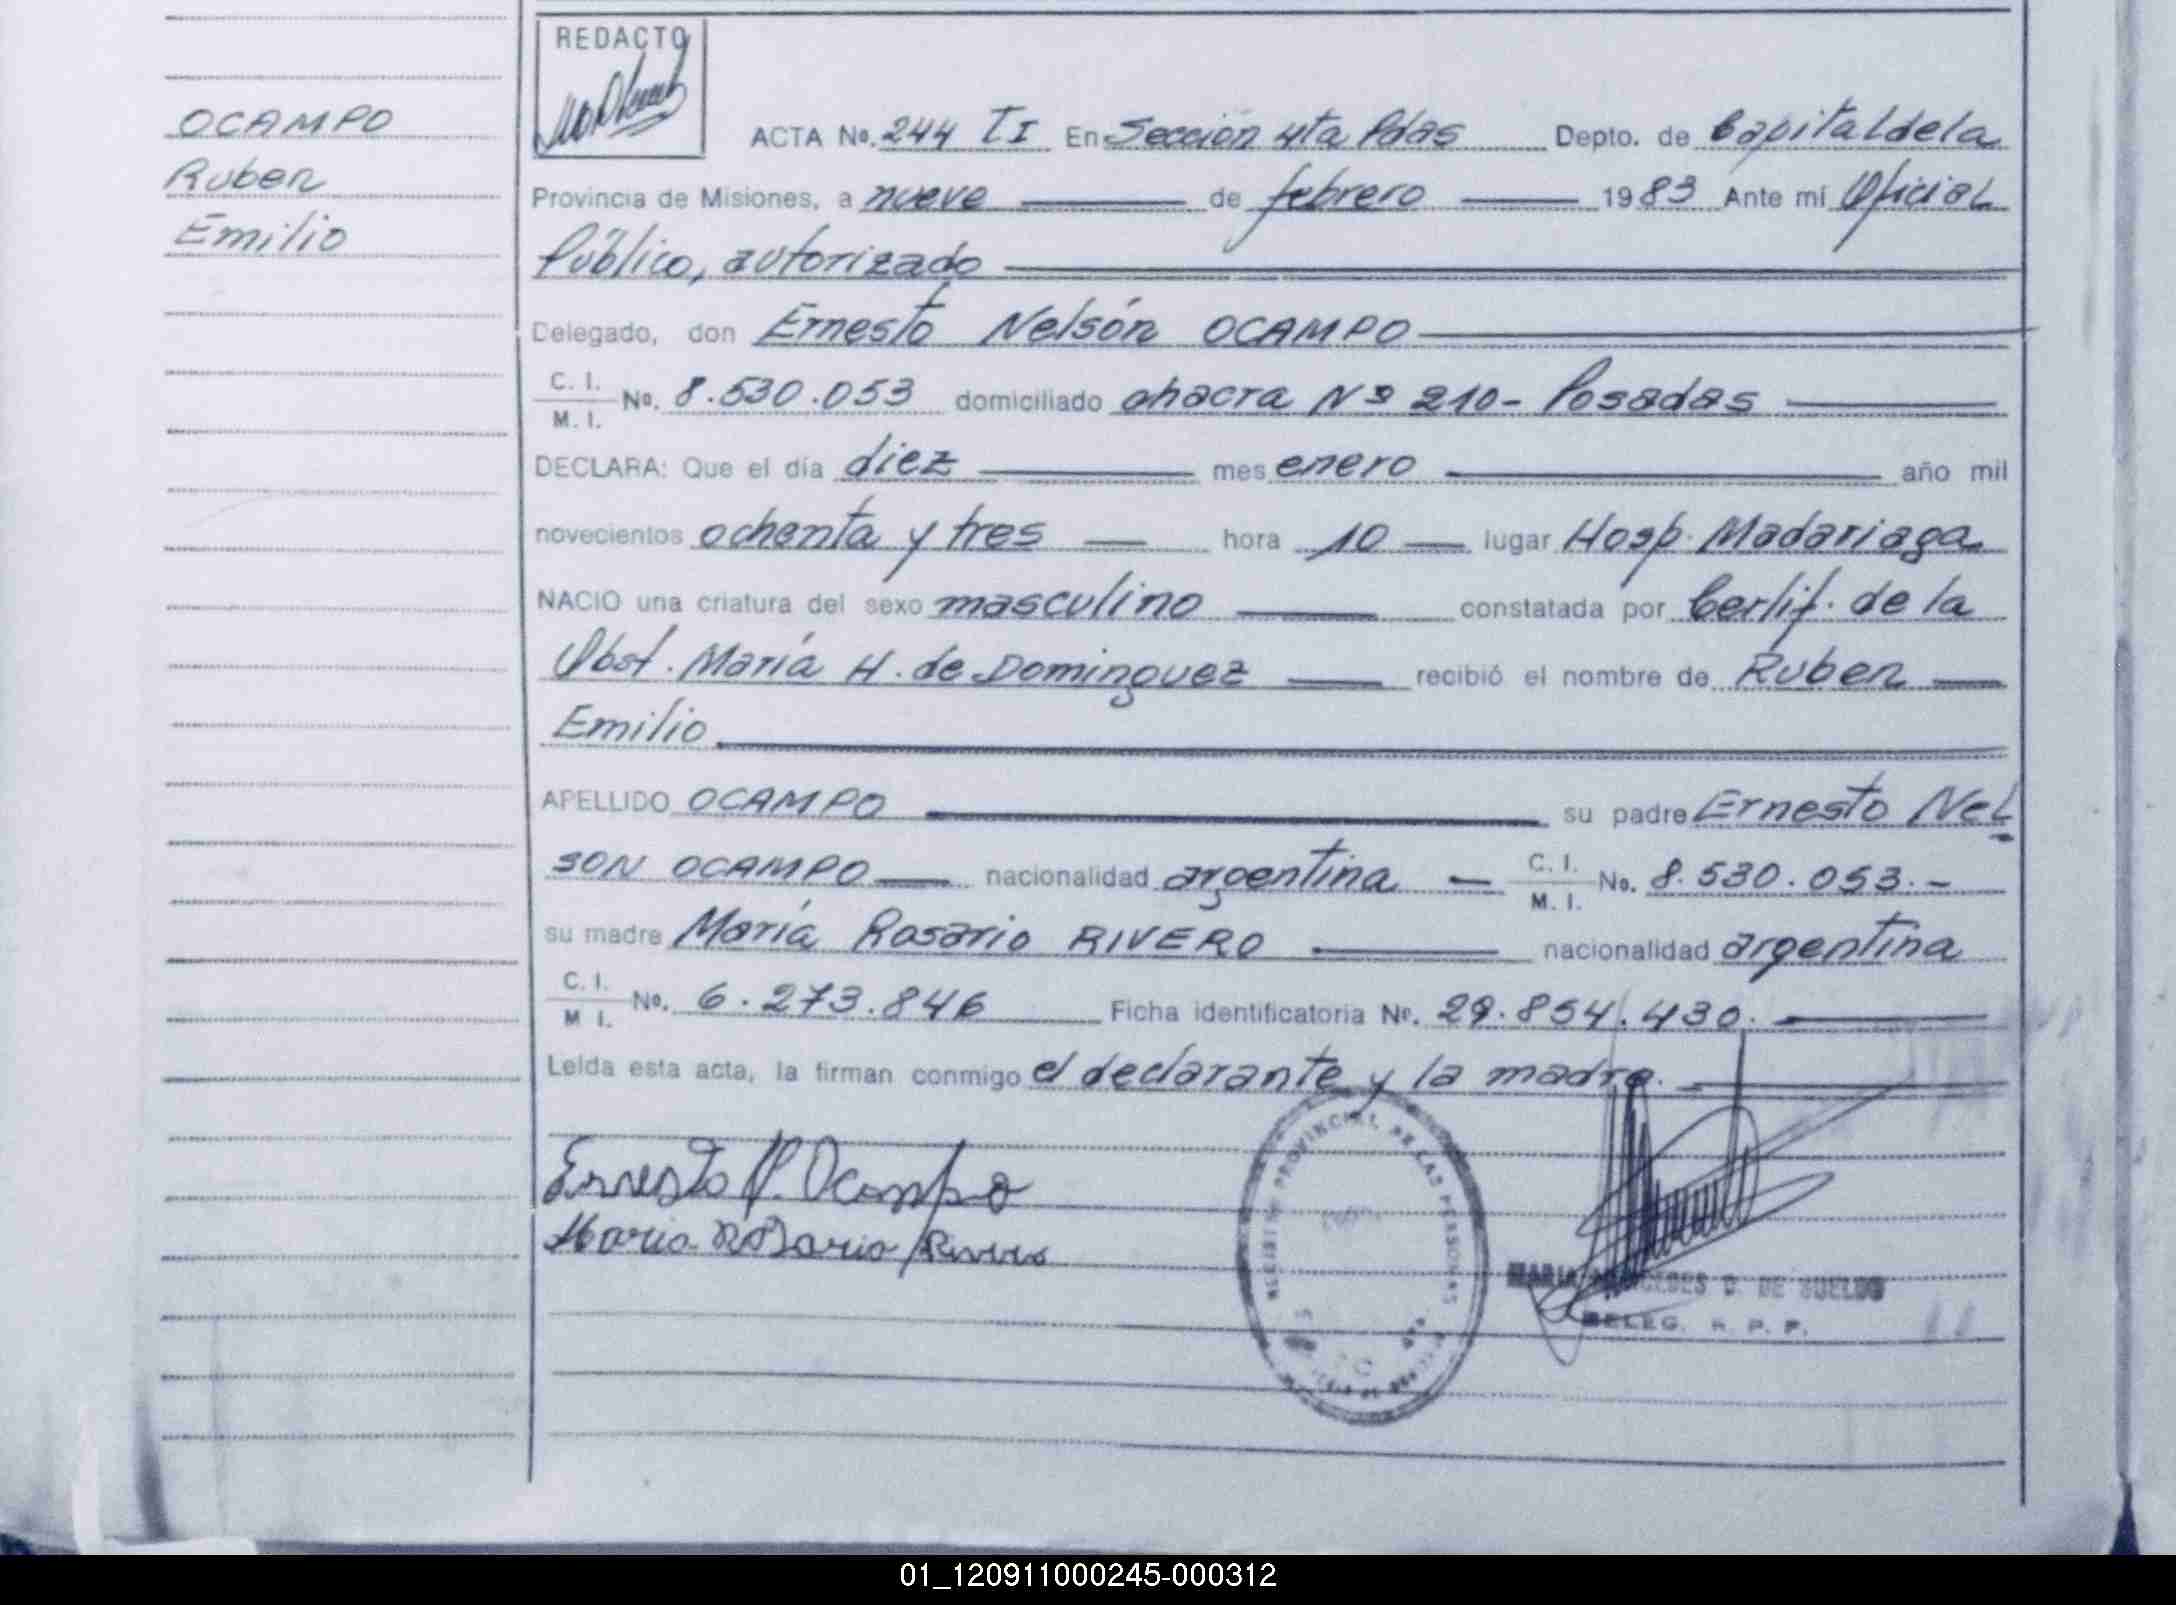 REDACTO
OCAMPO
Ruben
Emilio
ACTA No. 244 TI En Sección 4ta Pdas Depto. de Capital de la
Provincia de Misiones, a nueve de febrero 1983 Ante mí Oficial
Público, autorizado
Delegado, don Ernesto Nelsón OCAMPO
C. I.
M. I. No. 8.530.053 domiciliado chacra Nº 210- Posadas
DECLARA: Que el día diez mes enero año mil
novecientos ochenta y tres hora 10 lugar Hosp. Madariaga
NACIO una criatura del sexo masculino constatada por Certif. de la
Obst. María H. de Dominguez recibió el nombre de Ruben
Emilio
APELLIDO OCAMPO su padre Ernesto Nel
SON OCAMPO nacionalidad argentina C. I.
M. I. No. 8.530.053.-
su madre María Rosario RIVERO nacionalidad argentina
C. I.
M I. No. 6.273.846 Ficha identificatoria No. 29.854.430.
Leída esta acta, la firman conmigo el declarante y la madre.
Ernesto N. Ocampo
Maria Rosario Rivero
PROVINCIAL DE LAS PERSONAS
MARIA D. DE SUELDO
DELEG. R. P. P.
01_120911000245-000312